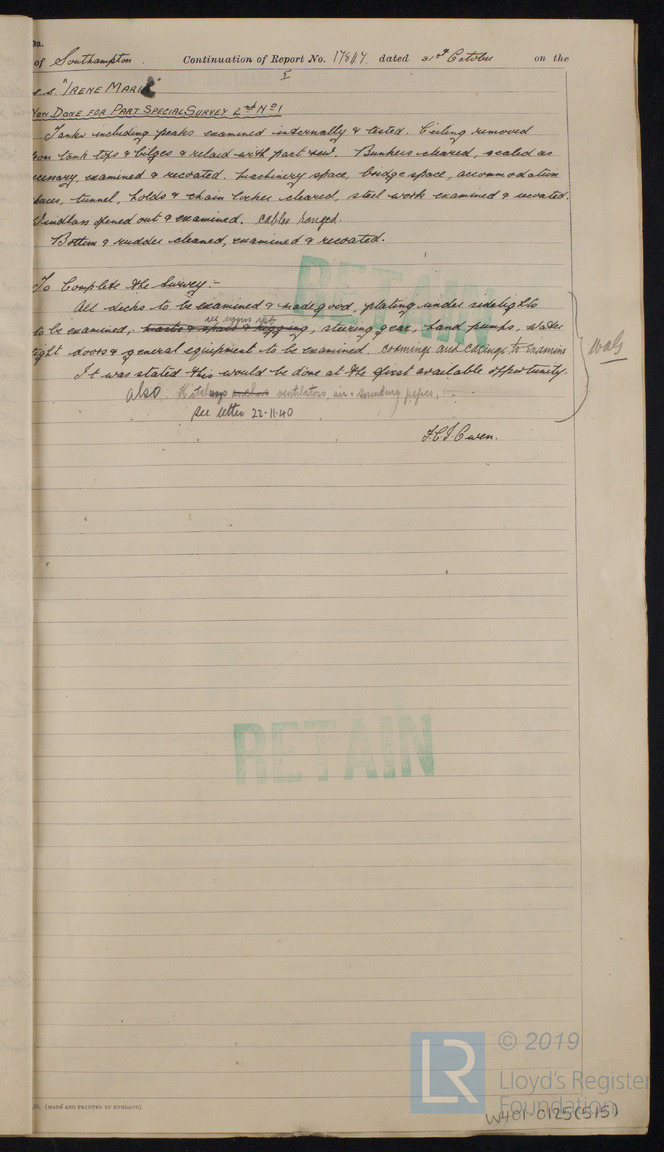 9a.
of Southampton Continuation of Report No. 17817. dated 31st October on the
5
s.s. "IRENE MARIE"
NOW DONE FOR PART SPECIAL SURVEY 2nd No 1
Tanks including peaks examined internally & tested. Ceiling removed
from tank tops & bilges & relaid with part new. Bunkers cleared, scaled as
cessary, examined & recoated. Machinery space, bridge space, accommodation
paces, tunnel, holds & chain locker cleared, steel work examined & recoated.
Windlass opened out & examined. Cables ranged.
Bottom & rudder cleaned, examined & recoated.
To Complete the Survey:-
All decks to be examined & made good, plating under sidelights
to be examined, masts & spars & rigging, steering gear, hand pumps, water
tight doors & general equipment to be examined. coamings and casings to examine
It was stated this would be done at the first available opportunity.
also Hatchways ventilators, air & sounding pipes,
see letter 22-11-40
F.C.J. Owen.
RETAIN
RETAIN
(MADE AND PRINTED IN ENGLAND)
LR
© 2019
Lloyd's Register
Foundation
W401-0125(5/5)